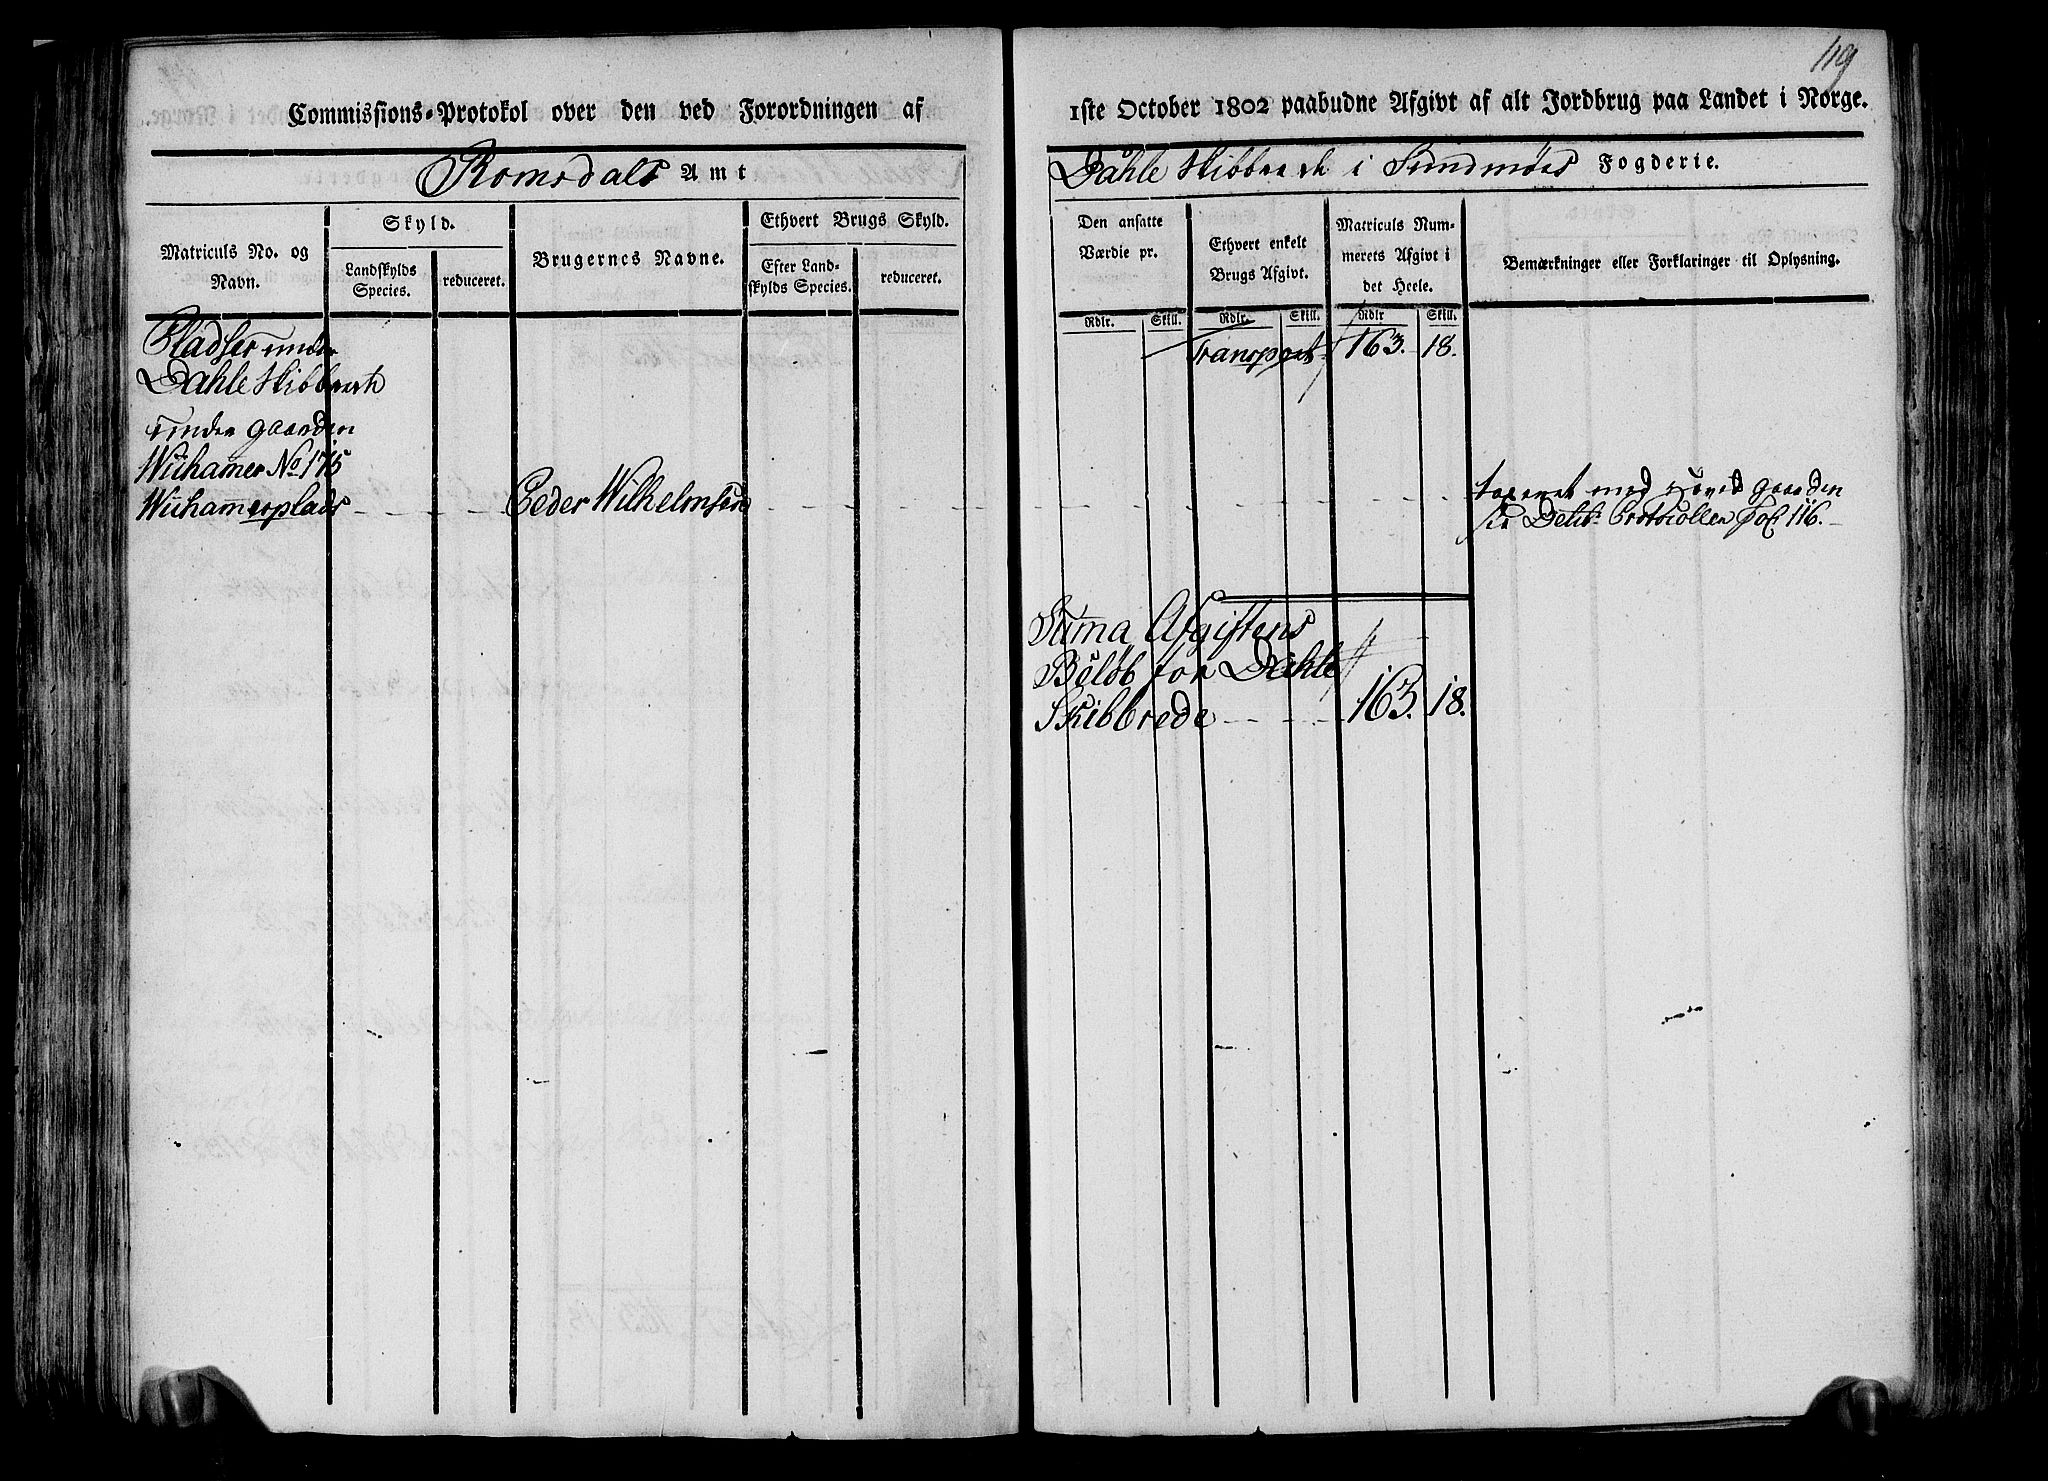 Commissions-Protokol over den ved Forordningen af
Romsdals Amt
Matriculs No. og Navn.
Skyld.
Landskylds Species.
reduceret.
Brugernes Navne.
Ethvert Brugs Skyld.
Efter Landskylds Species.
reduceret.
Pladser under
Dahle Skibbrede
under gaarden
Wiihamer No 175
Wiihammerplads
Peder Wilhelmsen
119
1ste October 1802 paabudne Afgivt af alt Jordbrug paa Landet i Norge.
Dahle Skibbrede i Sundmøers Fogderie.
Den ansatte Værdie pr.
Ethvert enkelt Brugs Afgivt.
Matriculs Nummerets Afgivt i det Heele.
Bemærkninger eller Forklaringer til Oplysning.
Rdlr. Skill. Rdlr. Skill. Rdlr Skill.
Transport 163. 18.
taxeret med Hoved gaarden
Delib: Protocollen Fol. 116.
Suma Afgiftens
Beløb for Dahle
Skibbrede 163. 18.